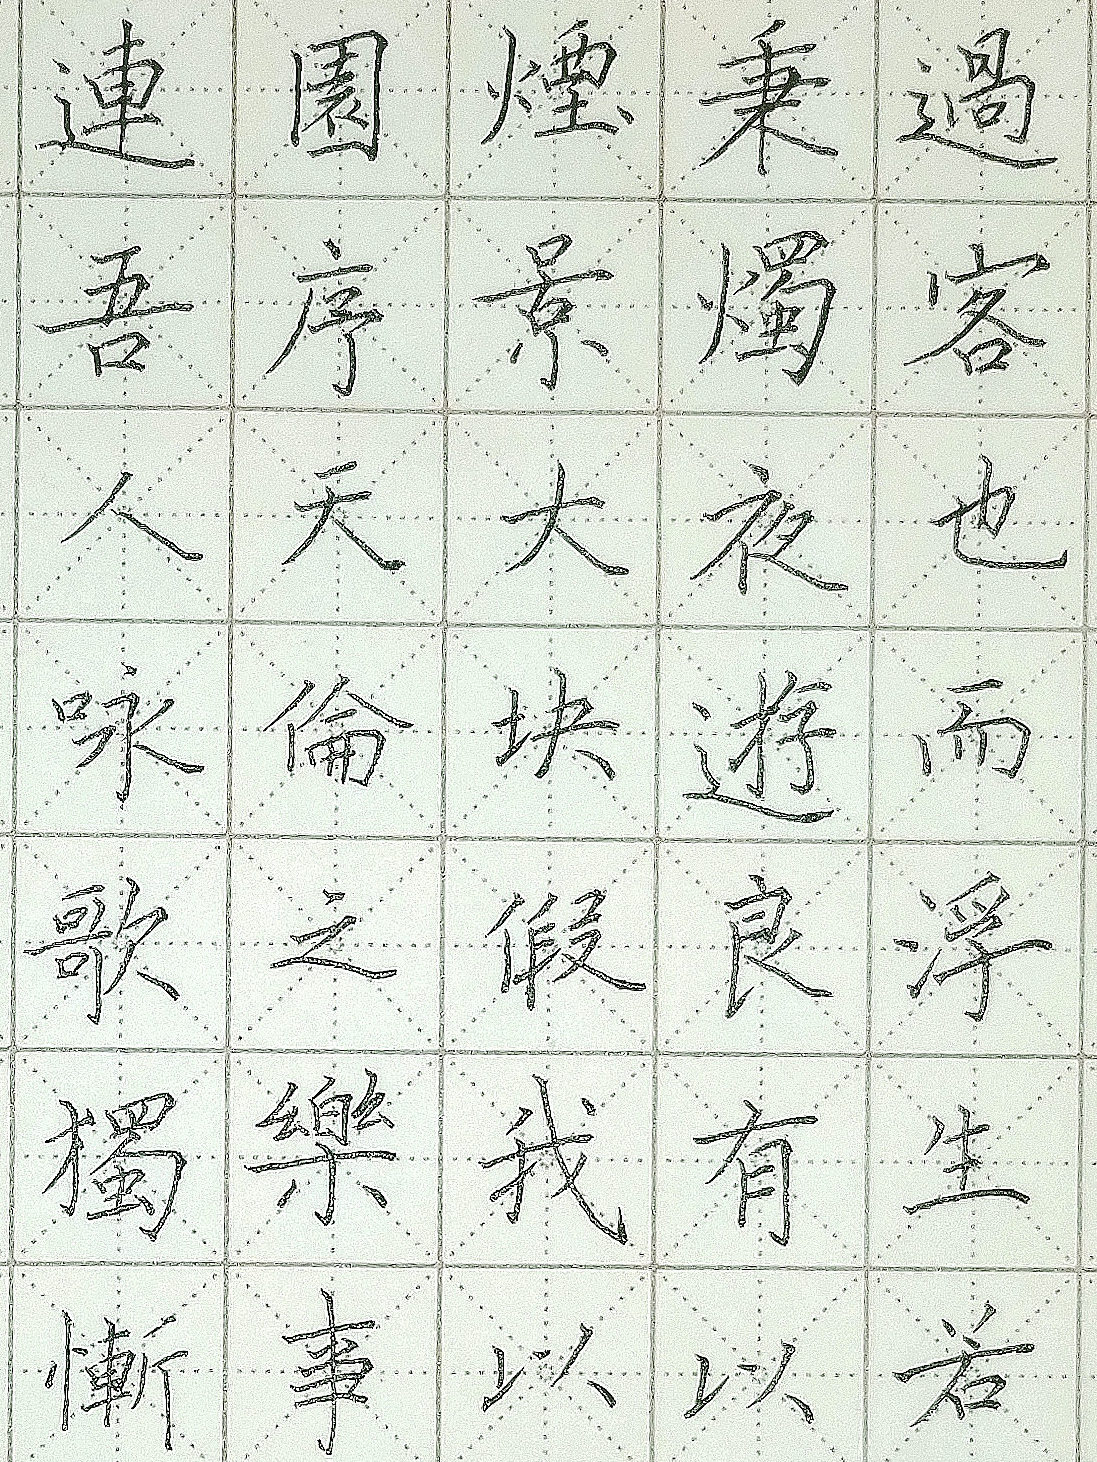 過客也而浮生若
秉燭夜遊良有以
煙景大块假我以
園序天倫之樂事
連吾人咏歌獨慚